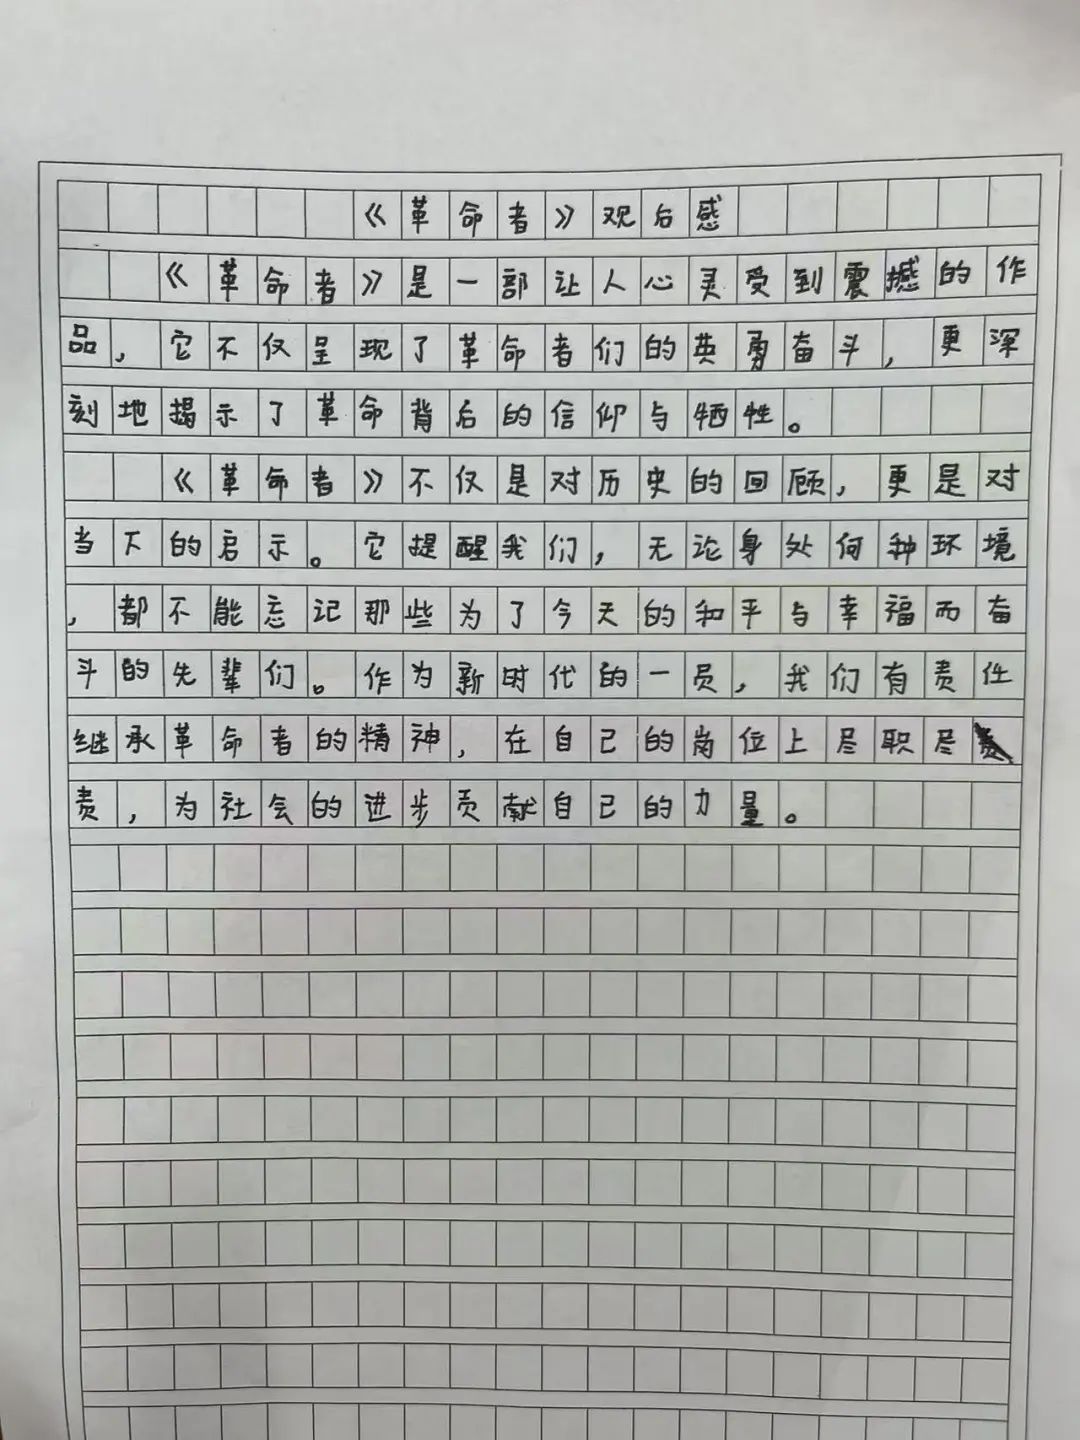 《革命者》观后感
《革命者》是一部让人心灵受到震撼的作
品，它不仅呈现了革命者们的英勇奋斗，更深
刻地揭示了革命背后的信仰与牺牲。
《革命者》不仅是对历史的回顾，更是对
当下的启示。它提醒我们，无论身处何种环境
，都不能忘记那些为了今天的和平与幸福而奋
斗的先辈们。作为新时代的一员，我们有责任
继承革命者的精神，在自己的岗位上尽职尽
责，为社会的进步贡献自己的力量。